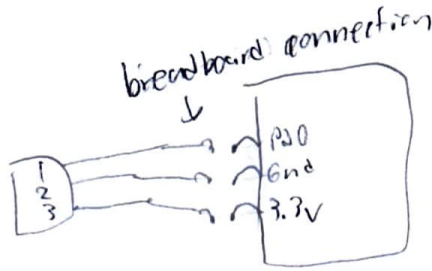 breadboard connection
1
2
3
PD0
Gnd
3.3V